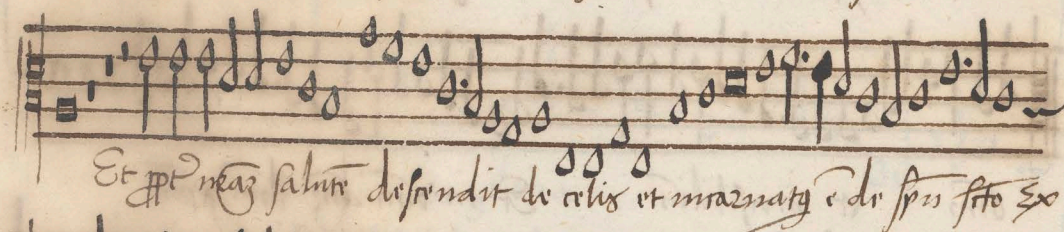 Et ppt̃ nr̃aʒ salutē descendit de celis et incarnatꝰ ē de spũ scto Ex